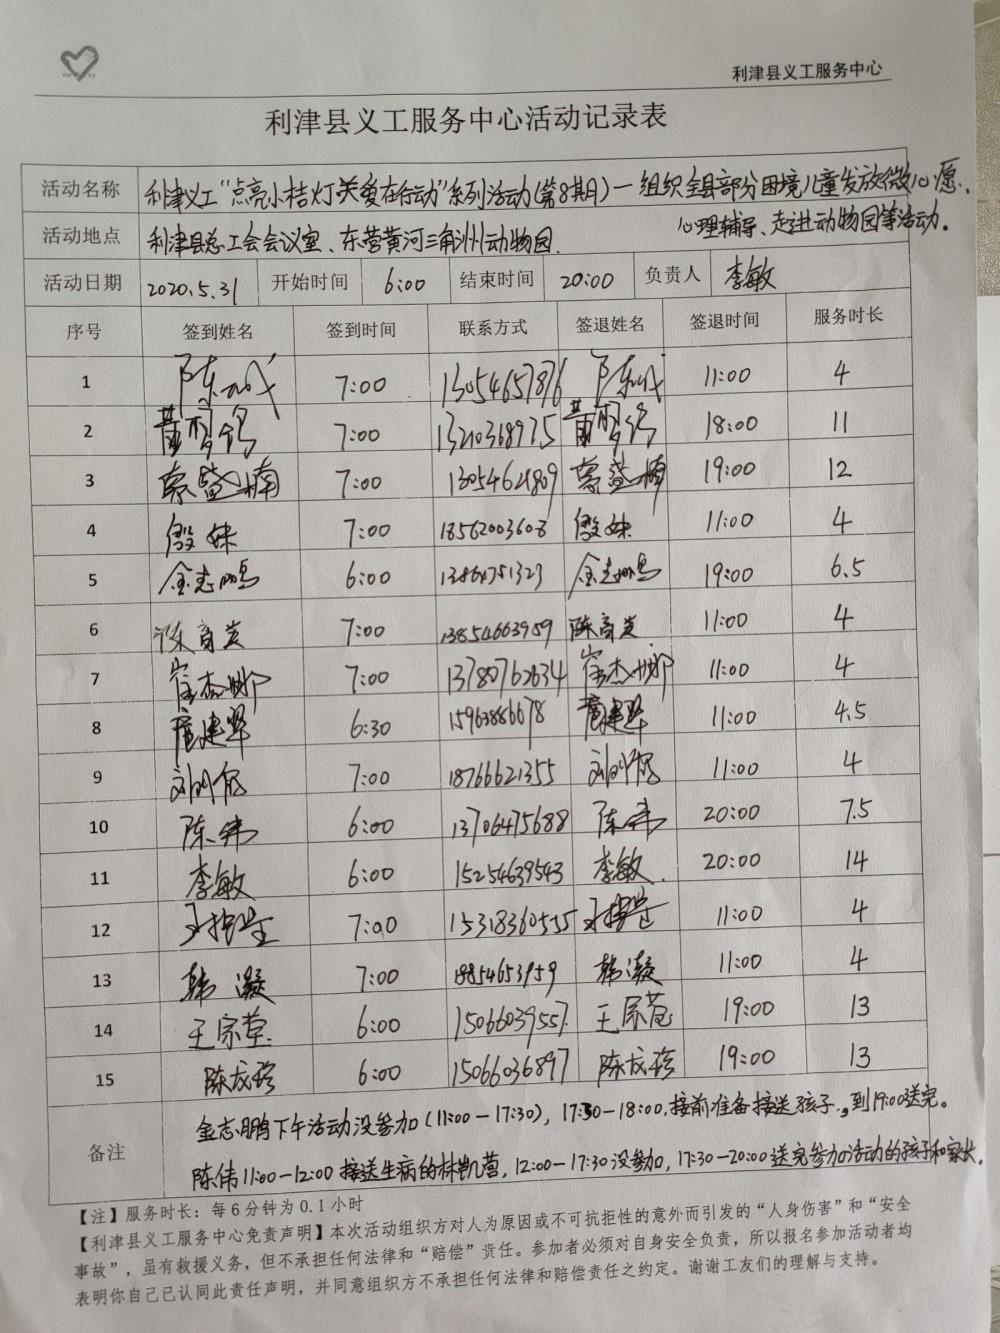 利津县义工服务中心
利津县义工服务中心活动记录表
活动名称 利津义工“点亮小桔灯关爱在行动”系列活动(第8期)一组织全县部分困境儿童发放微心愿、
心理辅导、走进动物园等活动.
活动地点 利津县总工会会议室、东营黄河三角洲动物园.
活动日期 2020.5.31 开始时间 6:00 结束时间 20:00 负责人 李敏
序号 签到姓名 签到时间 联系方式 签退姓名 签退时间 服务时长
1 7:00 13054657876 11:00 4
2 7:00 18:00 11
3 7:00 19:00 12
4 7:00 18562003608 11:00 4
5 金志鹏 6:00 金志鹏 19:00 6.5
6 7:00 13854663959 11:00 4
7 崔杰娜 7:00 13780762634 崔杰娜 11:00 4
8 6:30 15963886678 11:00 4.5
9 7:00 18766621355 11:00 4
10 陈伟 6:00 13706475688 陈伟 20:00 7.5
11 李敏 6:00 15254639543 李敏. 20:00 14
12 7:00 15318360555 11:00 4
13 韩凝 7:00 18854653959 韩凝 11:00 4
14 6:00 15066039557 19:00 13
15 6:00 15066036897 19:00 13
备注 金志鹏下午活动没参加(11:00-17:30), 17:30-18:00.接前准备接送孩子.,到19:00送完。
陈伟11:00-12:00接送生病的林凯营, 12:00-17:30没参加, 17:30-20:00送完参加活动的孩子和家长.
【注】服务时长：每6分钟为0.1小时
【利津县义工服务中心免责声明】本次活动组织方对人为原因或不可抗拒性的意外而引发的“人身伤害”和“安全
事故”，虽有救援义务，但不承担任何法律和“赔偿”责任。参加者必须对自身安全负责，所以报名参加活动者均
表明你自己已认同此责任声明，并同意组织方不承担任何法律和赔偿责任之约定。谢谢工友们的理解与支持。